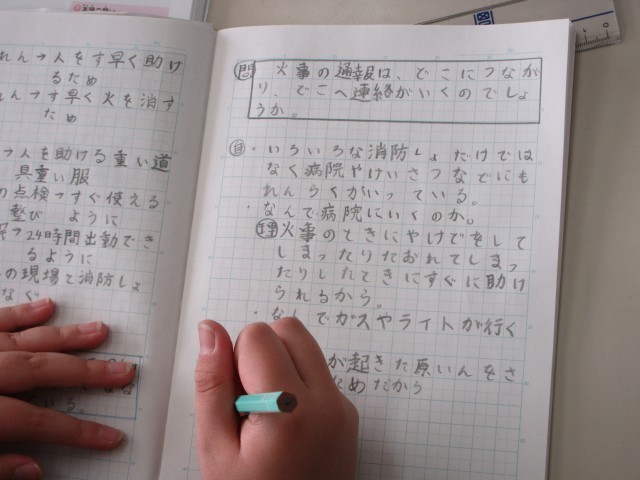 れん→人をす早く助け
るため
れん→す早く火を消す
ため
→人を助ける重い道
具重い服
の点検→すぐ使える
ように
→24時間出動でき
るように
の現場で消防しょ
なぐ
いる。
問 火事の通報は、どこにつなが
り、どこへ連絡がいくのでしょ
うか。
自・いろいろな消防しょだけでは
なく病院やけいさつなどにも
れんらくがいっている。
・なんで病院にいくのか。
理火事のときにやけどをして
しまったりたおれてしまっ
たりしたときにすぐに助け
られるから。
・なんでガスやライトが行く
が起きた原いんをさ
ためだから